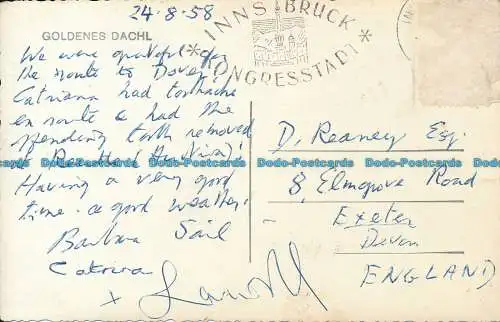 24-8-58
GOLDENES DACHL
INNSBRUCK
* KONGRESSTADT *
IN
We were grateful for
the route to Dover!
Catriona had toothache
en route & had the
offending tooth removed
Having a very good
time & good weather.
Barbara Gail
Catriona
+
D. Reaney Esq.
8, Elmgrove Road
Exeter
Devon
ENGLAND
Dodo-Postcards Dodo-Postcards Dodo-Postcards Dodo-Postcards Dodo-Postcards